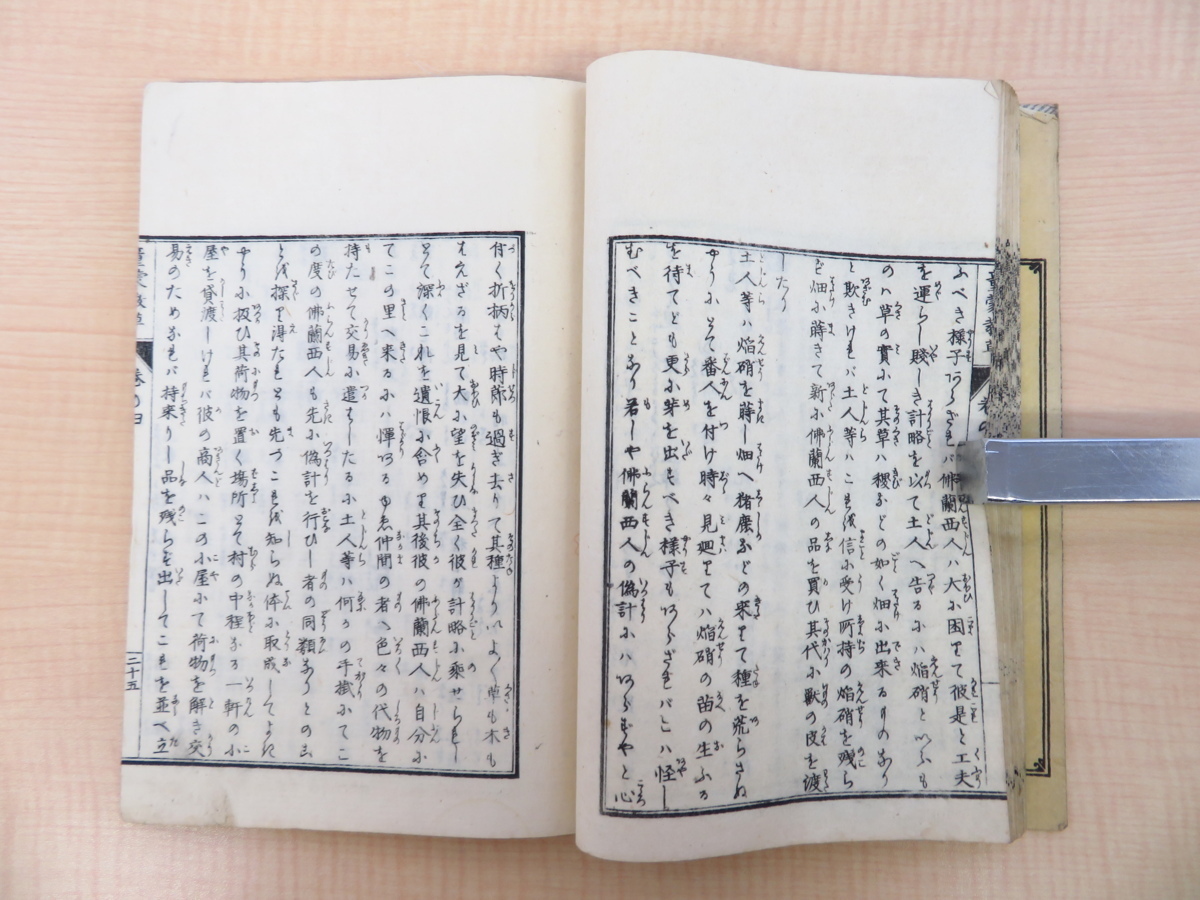 ふべき様子あらざれバ佛蘭西人ハ大小困りて彼是と工夫
を運らし賤しき計略を以て土人へ告るに焔硝といふも
のハ草の實にて其草ハ稷などの如く畑に出来るものなり
と欺きけれバ土人等ハこれを信に受け所持の焔硝を残ら
ず畑に蒔きて新に佛蘭西人の品を買ひ其代に獸の皮を渡
したり
土人等ハ焔硝を蒔し畑へ猪鹿などの来りて種を荒らさぬ
やうにとて番人を付け時々見廻りてハ焔硝の苗の生ふる
を待てども更に芽を出すべき様子もあらざれバこハ怪し
むべきことなり若しや佛蘭西人の偽計にハあらずやと心
付く折柄もや時節も過ぎ去りて其種よりハよく草も木も
もえざるを見て大に望を失ひ全く彼が計略に乘せられし
とて深くこれを遺恨に含めり其後彼の佛蘭西人ハ自分に
てこの里へ来るにハ憚あるゆゑ仲間の者へ色々の代物を
持たせて交易に遣はしたるに土人等ハ何かの手掛にてこ
の度の佛蘭西人も先に偽計を行ひし者の同類なりとのこ
とを探り得たれども先づこれを知らぬ体に取成してよき
やうに扱ひ其荷物を置く場所とて村の中程なる一軒の小
屋を貸渡しけれバ彼の商人ハこの小屋にて荷物を解き交
易のためなれバ持来りし品を残らず出してこれを並べ立
童蒙教草
巻の四
二十五